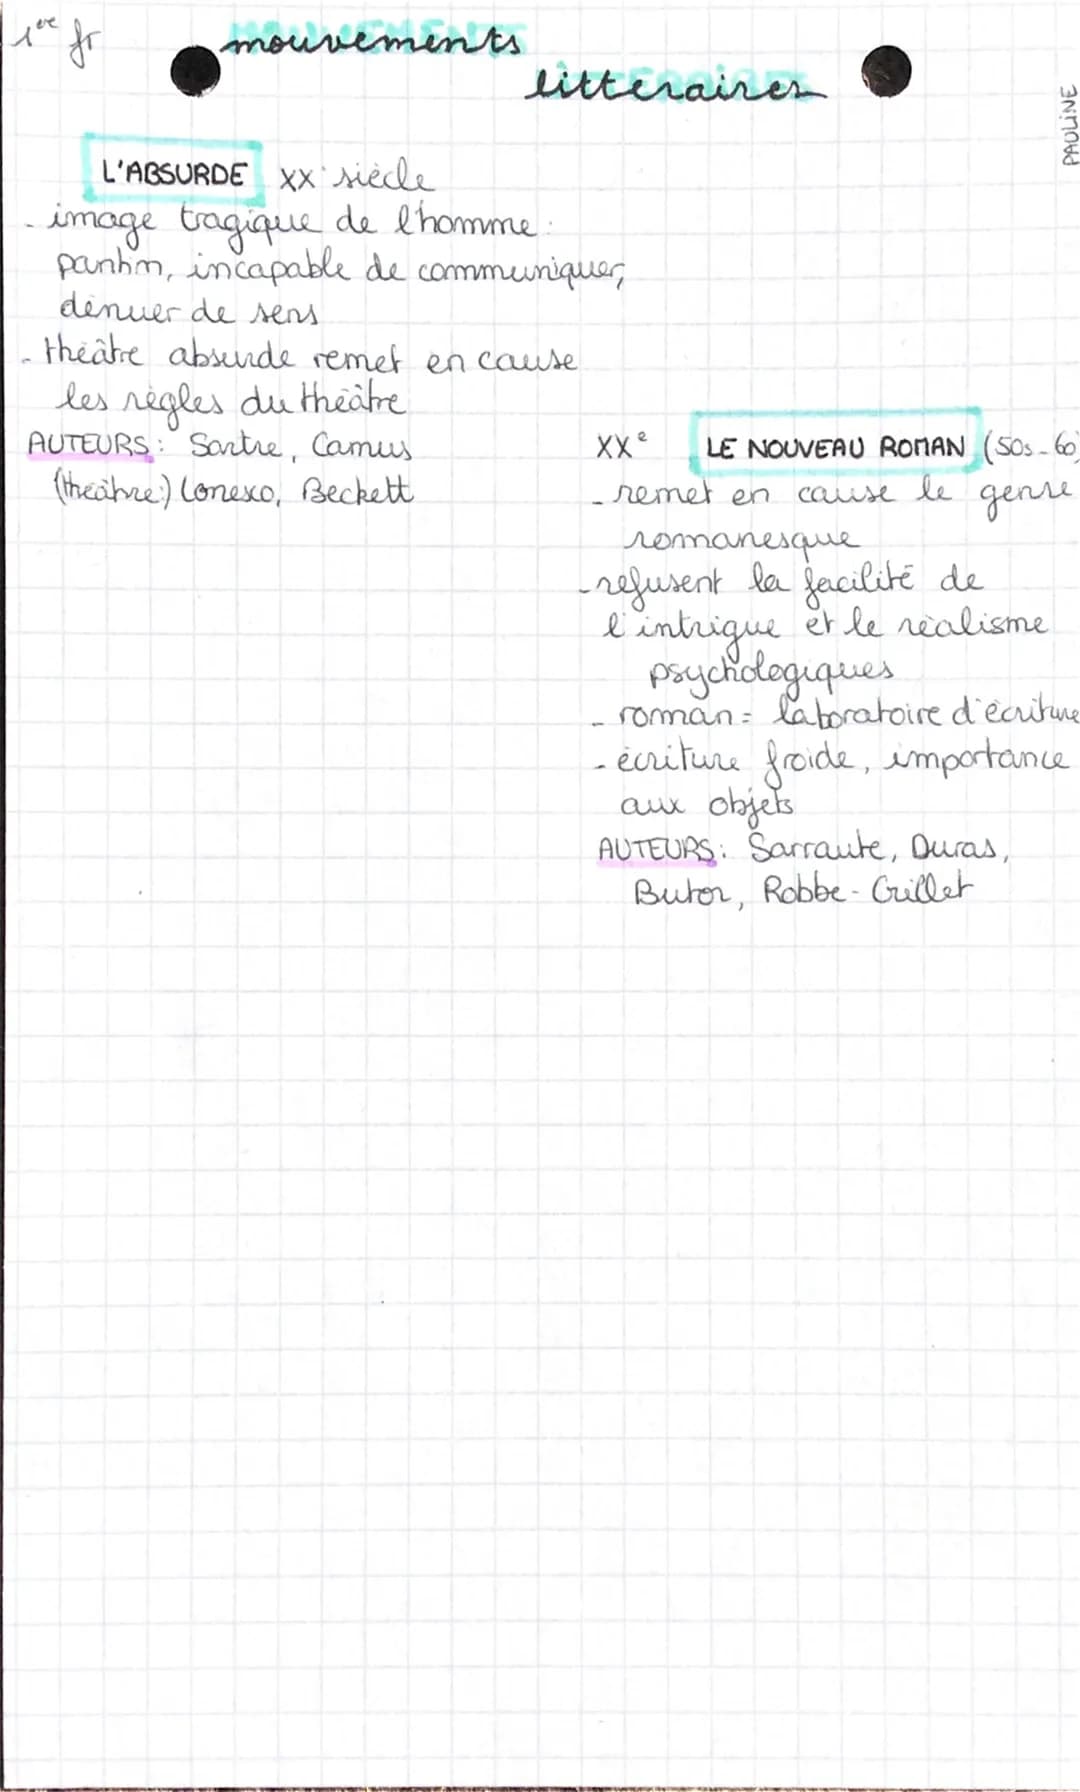 1ère fr
mouvements
littéraires
PAULINE
L'ABSURDE XX siècle
- image tragique de l'homme :
pantin, incapable de communiquer,
dénuer de sens
- théâtre absurde remet en cause
les règles du théâtre
AUTEURS : Sartre, Camus
(théâtre:) Ionesco, Beckett
XXe LE NOUVEAU ROMAN (50s-60)
- remet en cause le genre
romanesque
- refusent la facilité de
l'intrigue et le réalisme
psychologiques
- roman = laboratoire d'écriture
- écriture froide, importance
aux objets
AUTEURS : Sarraute, Duras,
Butor, Robbe-Grillet